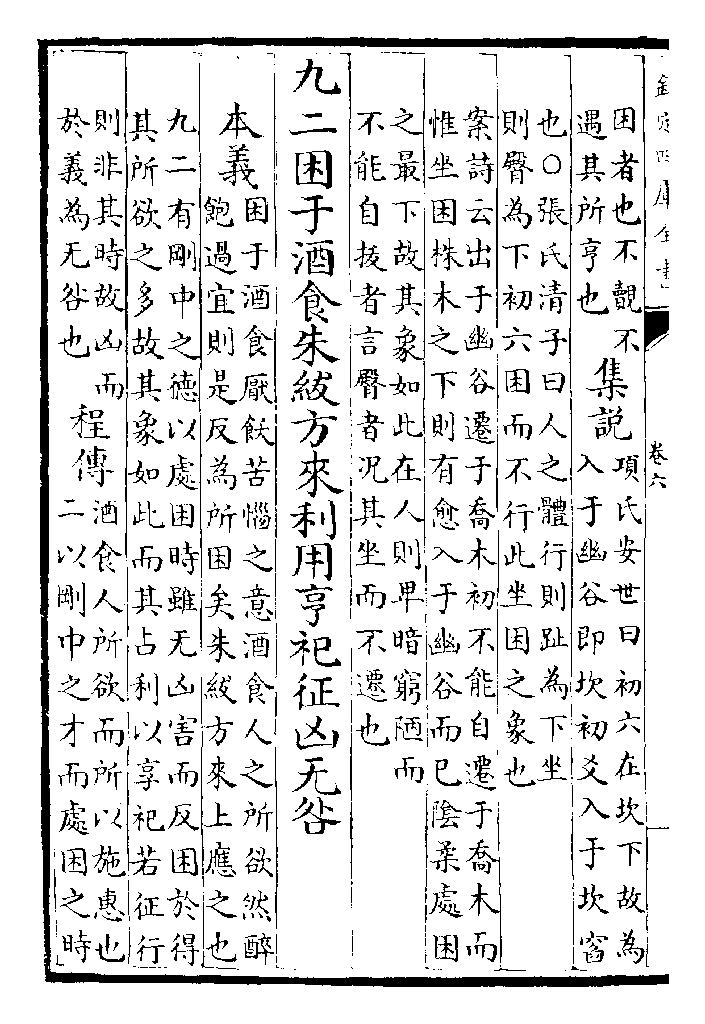 欽定四庫全書
卷六
困者也不覿不
遇其所亨也
集説
項氏安世曰初六在坎下故為
入于幽谷即坎初爻入于坎窞
也○張氏清子曰人之體行則趾為下坐
則臀為下初六困而不行此坐困之象也
案詩云出于幽谷遷于喬木初不能自遷于喬木而
惟坐困株木之下則有愈入于幽谷而已陰柔處困
之最下故其象如此在人則卑暗窮陋而
不能自拔者言臀者況其坐而不遷也
九二困于酒食朱紱方來利用亨祀征凶无咎
本義
困于酒食厭飫苦惱之意酒食人之所欲然醉
飽過宜則是反為所困矣朱紱方來上應之也
九二有剛中之德以處困時雖无凶害而反困於得
其所欲之多故其象如此而其占利以享祀若征行
則非其時故凶而
於義為无咎也
程傳
酒食人所欲而所以施惠也
二以剛中之才而處困之時